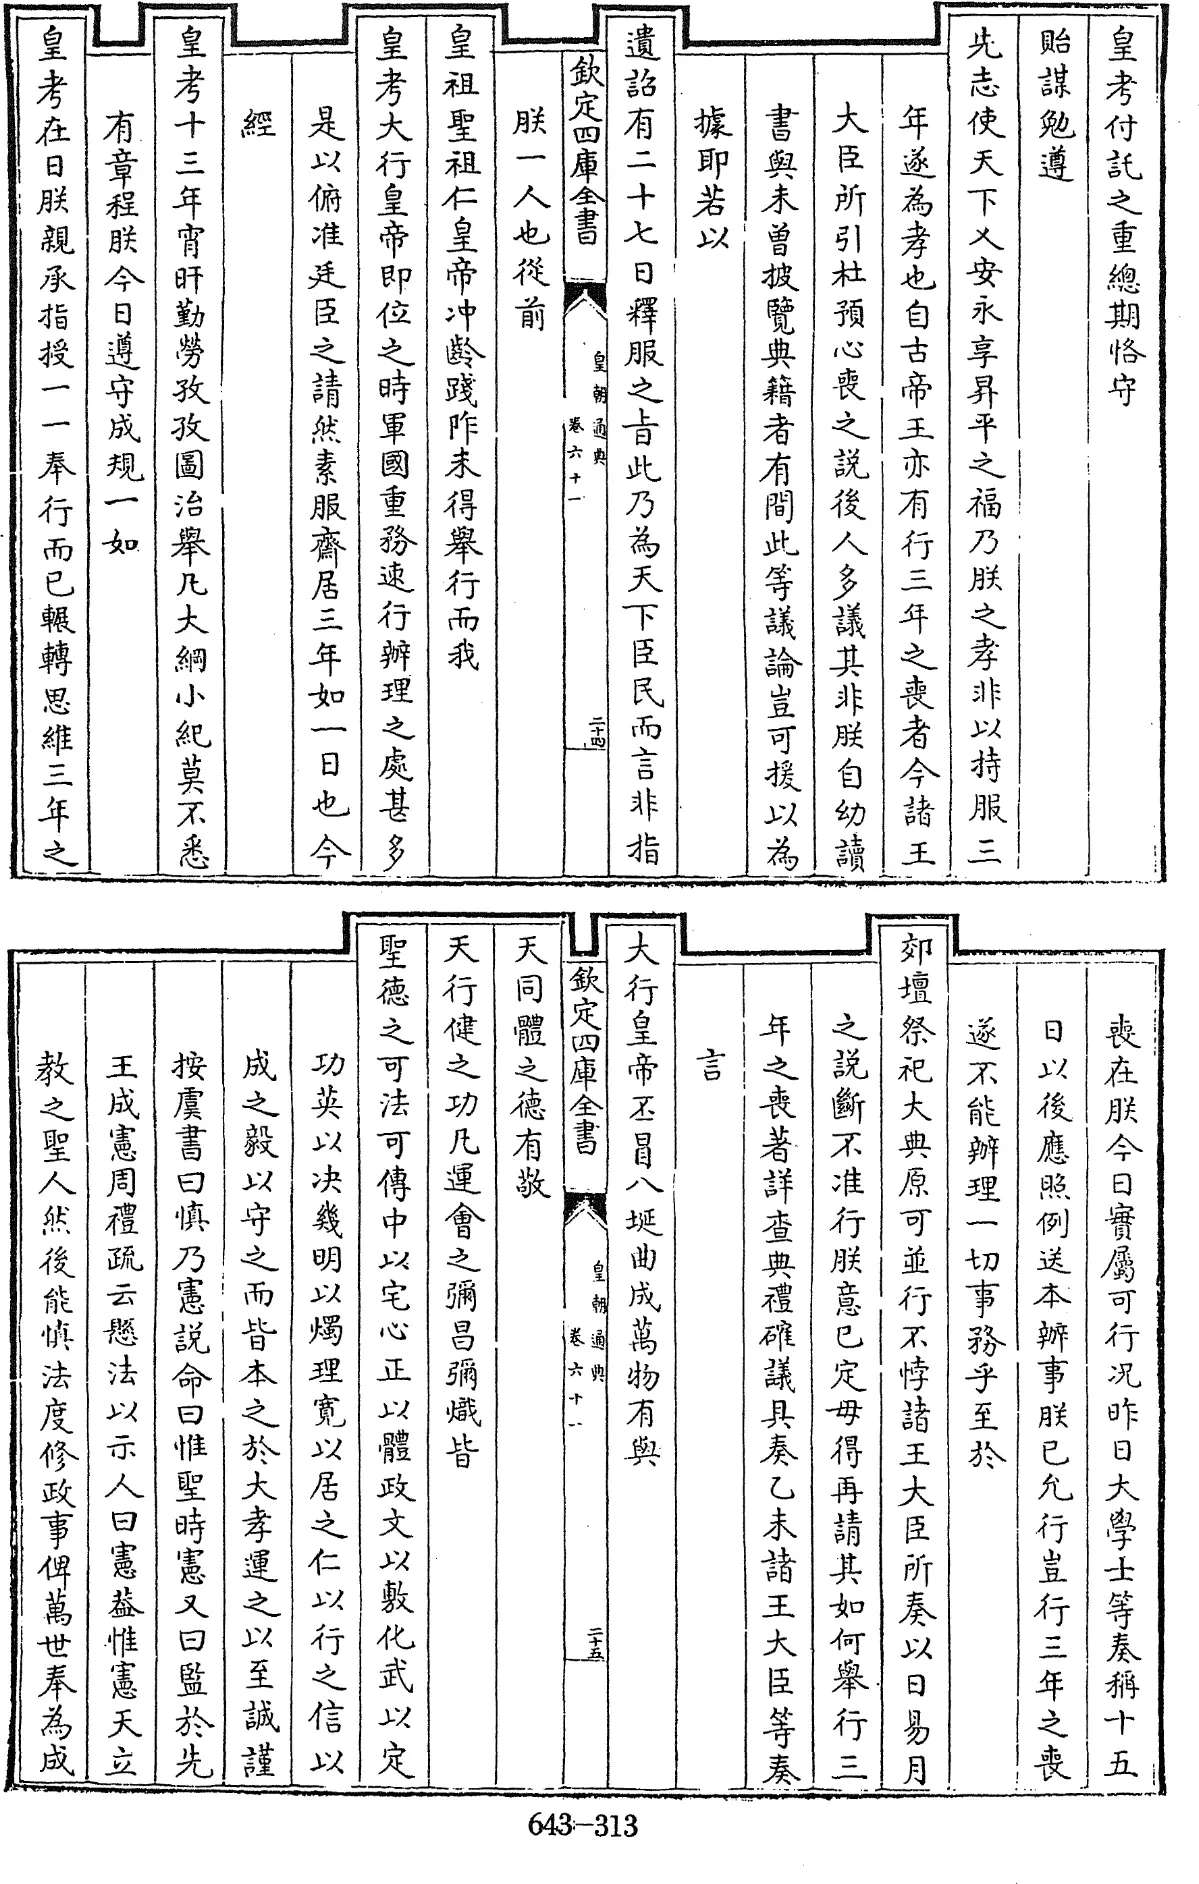 皇考付託之重總期恪守
貽謀勉遵
先志使天下乂安永享昇平之福乃朕之孝非以持服三
年遂為孝也自古帝王亦有行三年之喪者今諸王
大臣所引杜預心喪之説後人多議其非朕自幼讀
書與未曾披覽典籍者有間此等議論豈可援以為
據耶若以
遺詔有二十七日釋服之㫖此乃為天下臣民而言非指
欽定四庫全書
皇朝通典
卷六十一
二十四
朕一人也從前
皇祖聖祖仁皇帝冲齡踐阼未得舉行而我
皇考大行皇帝即位之時軍國重務速行辦理之處甚多
是以俯准廷臣之請然素服齋居三年如一日也今
經
皇考十三年宵旰勤勞孜孜圖治舉凡大綱小紀莫不悉
有章程朕今日遵守成規一如
皇考在日朕親承指授一一奉行而已輾轉思維三年之
喪在朕今日實屬可行况昨日大學士等奏稱十五
日以後應照例送本辦事朕已允行豈行三年之喪
遂不能辦理一切事務乎至於
郊壇祭祀大典原可並行不悖諸王大臣所奏以日易月
之説斷不准行朕意已定毋得再請其如何舉行三
年之喪著詳查典禮確議具奏乙未諸王大臣等奏
言
大行皇帝丕冒八埏曲成萬物有與
欽定四庫全書
皇朝通典
卷六十一
二十五
天同體之德有敬
天行健之功凡運會之彌昌彌熾皆
聖德之可法可傳中以宅心正以體政文以敷化武以定
功英以决幾明以燭理寛以居之仁以行之信以
成之毅以守之而皆本之於大孝運之以至誠謹
按虞書曰慎乃憲説命曰惟聖時憲又曰監於先
王成憲周禮疏云懸法以示人曰憲葢惟憲天立
教之聖人然後能慎法度修政事俾萬世奉為成
643-313